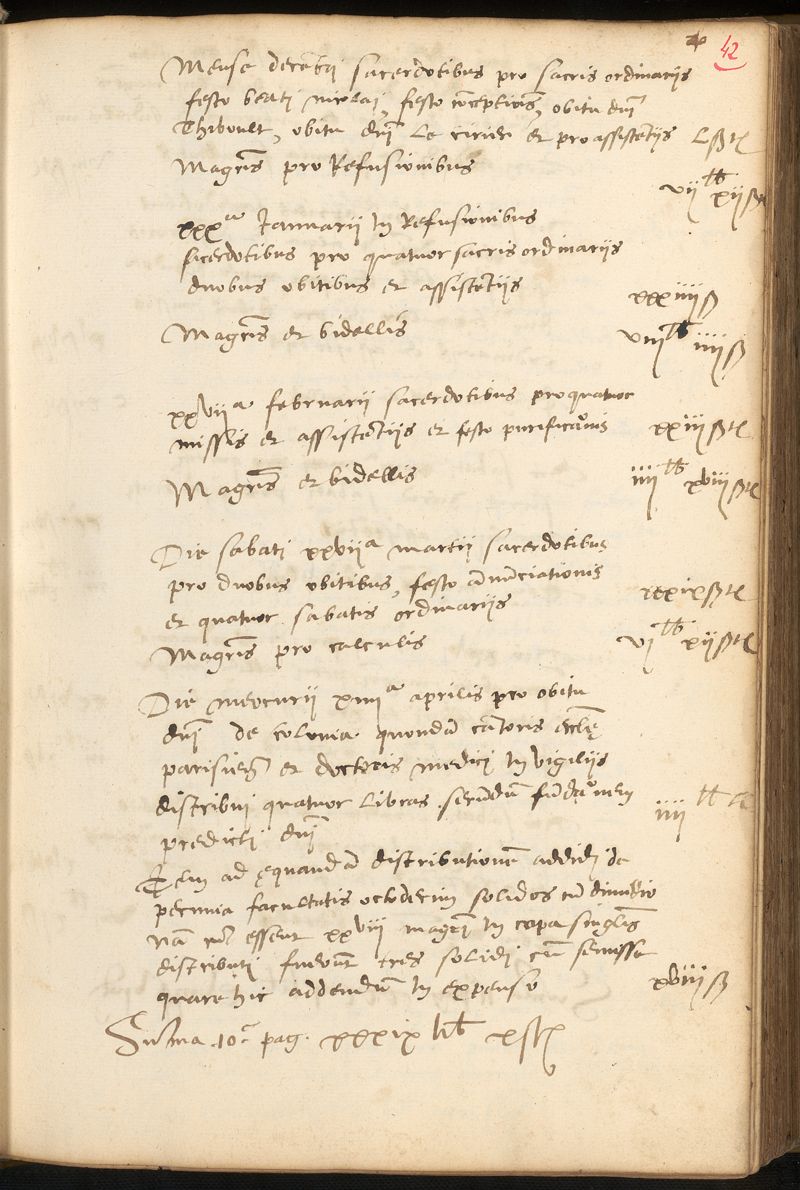 42
Mense decēbri sacerdotibus pro sacris ordinariis
festo beati nicolai, festo cōceptiōis, obitu dnī
Thiboult, obitu dnī le cirier et pro assistētiis Lß tˢ
Magrīs pro Refusionibus vii lb xii ß
xxxᵃ Januarii In Refusionibus
sacerdotibus pro quatuor sacris ordinariis
duobus obitibus et assistētiis xxxiiii ß
Magrīs et bidellis viii lb iiii ß
xxviiᵃ februarii sacerdotibus pro quatuor
missis et assistētiis et festo purificaōnis xxiii ß tˢ
Magrīs et bidellis iiii lb xviii ß tˢ
Die sabati xxviiᵃ martii sacerdotibus
pro duobus obitibus, festo ānūciationis
et quatuor sabatis ordinariis xxxix ß tˢ
Magrīs pro calculis vi lb xii ß tˢ
Die mercurii xiiiiᵃ aprilis pro obitu
dnī de colonia quondā cātoris ecclē
parisieñ et doctoris medici In vigiliis
distribui quatuor libras secūdū fūdaōnem
predicti dnī iiii lb
Itē ad ęquandā distributionē addidi de
pecunia facultatis octodecim solidos cū dimidio
nā cū essent xxviii magrī In capa singlīs
distributi fuerūt tres solidi cū semisse
quare hic addendū In expenso xviii ß
Sūma 10ᵉ pag. xxxix lib x ß tˢ